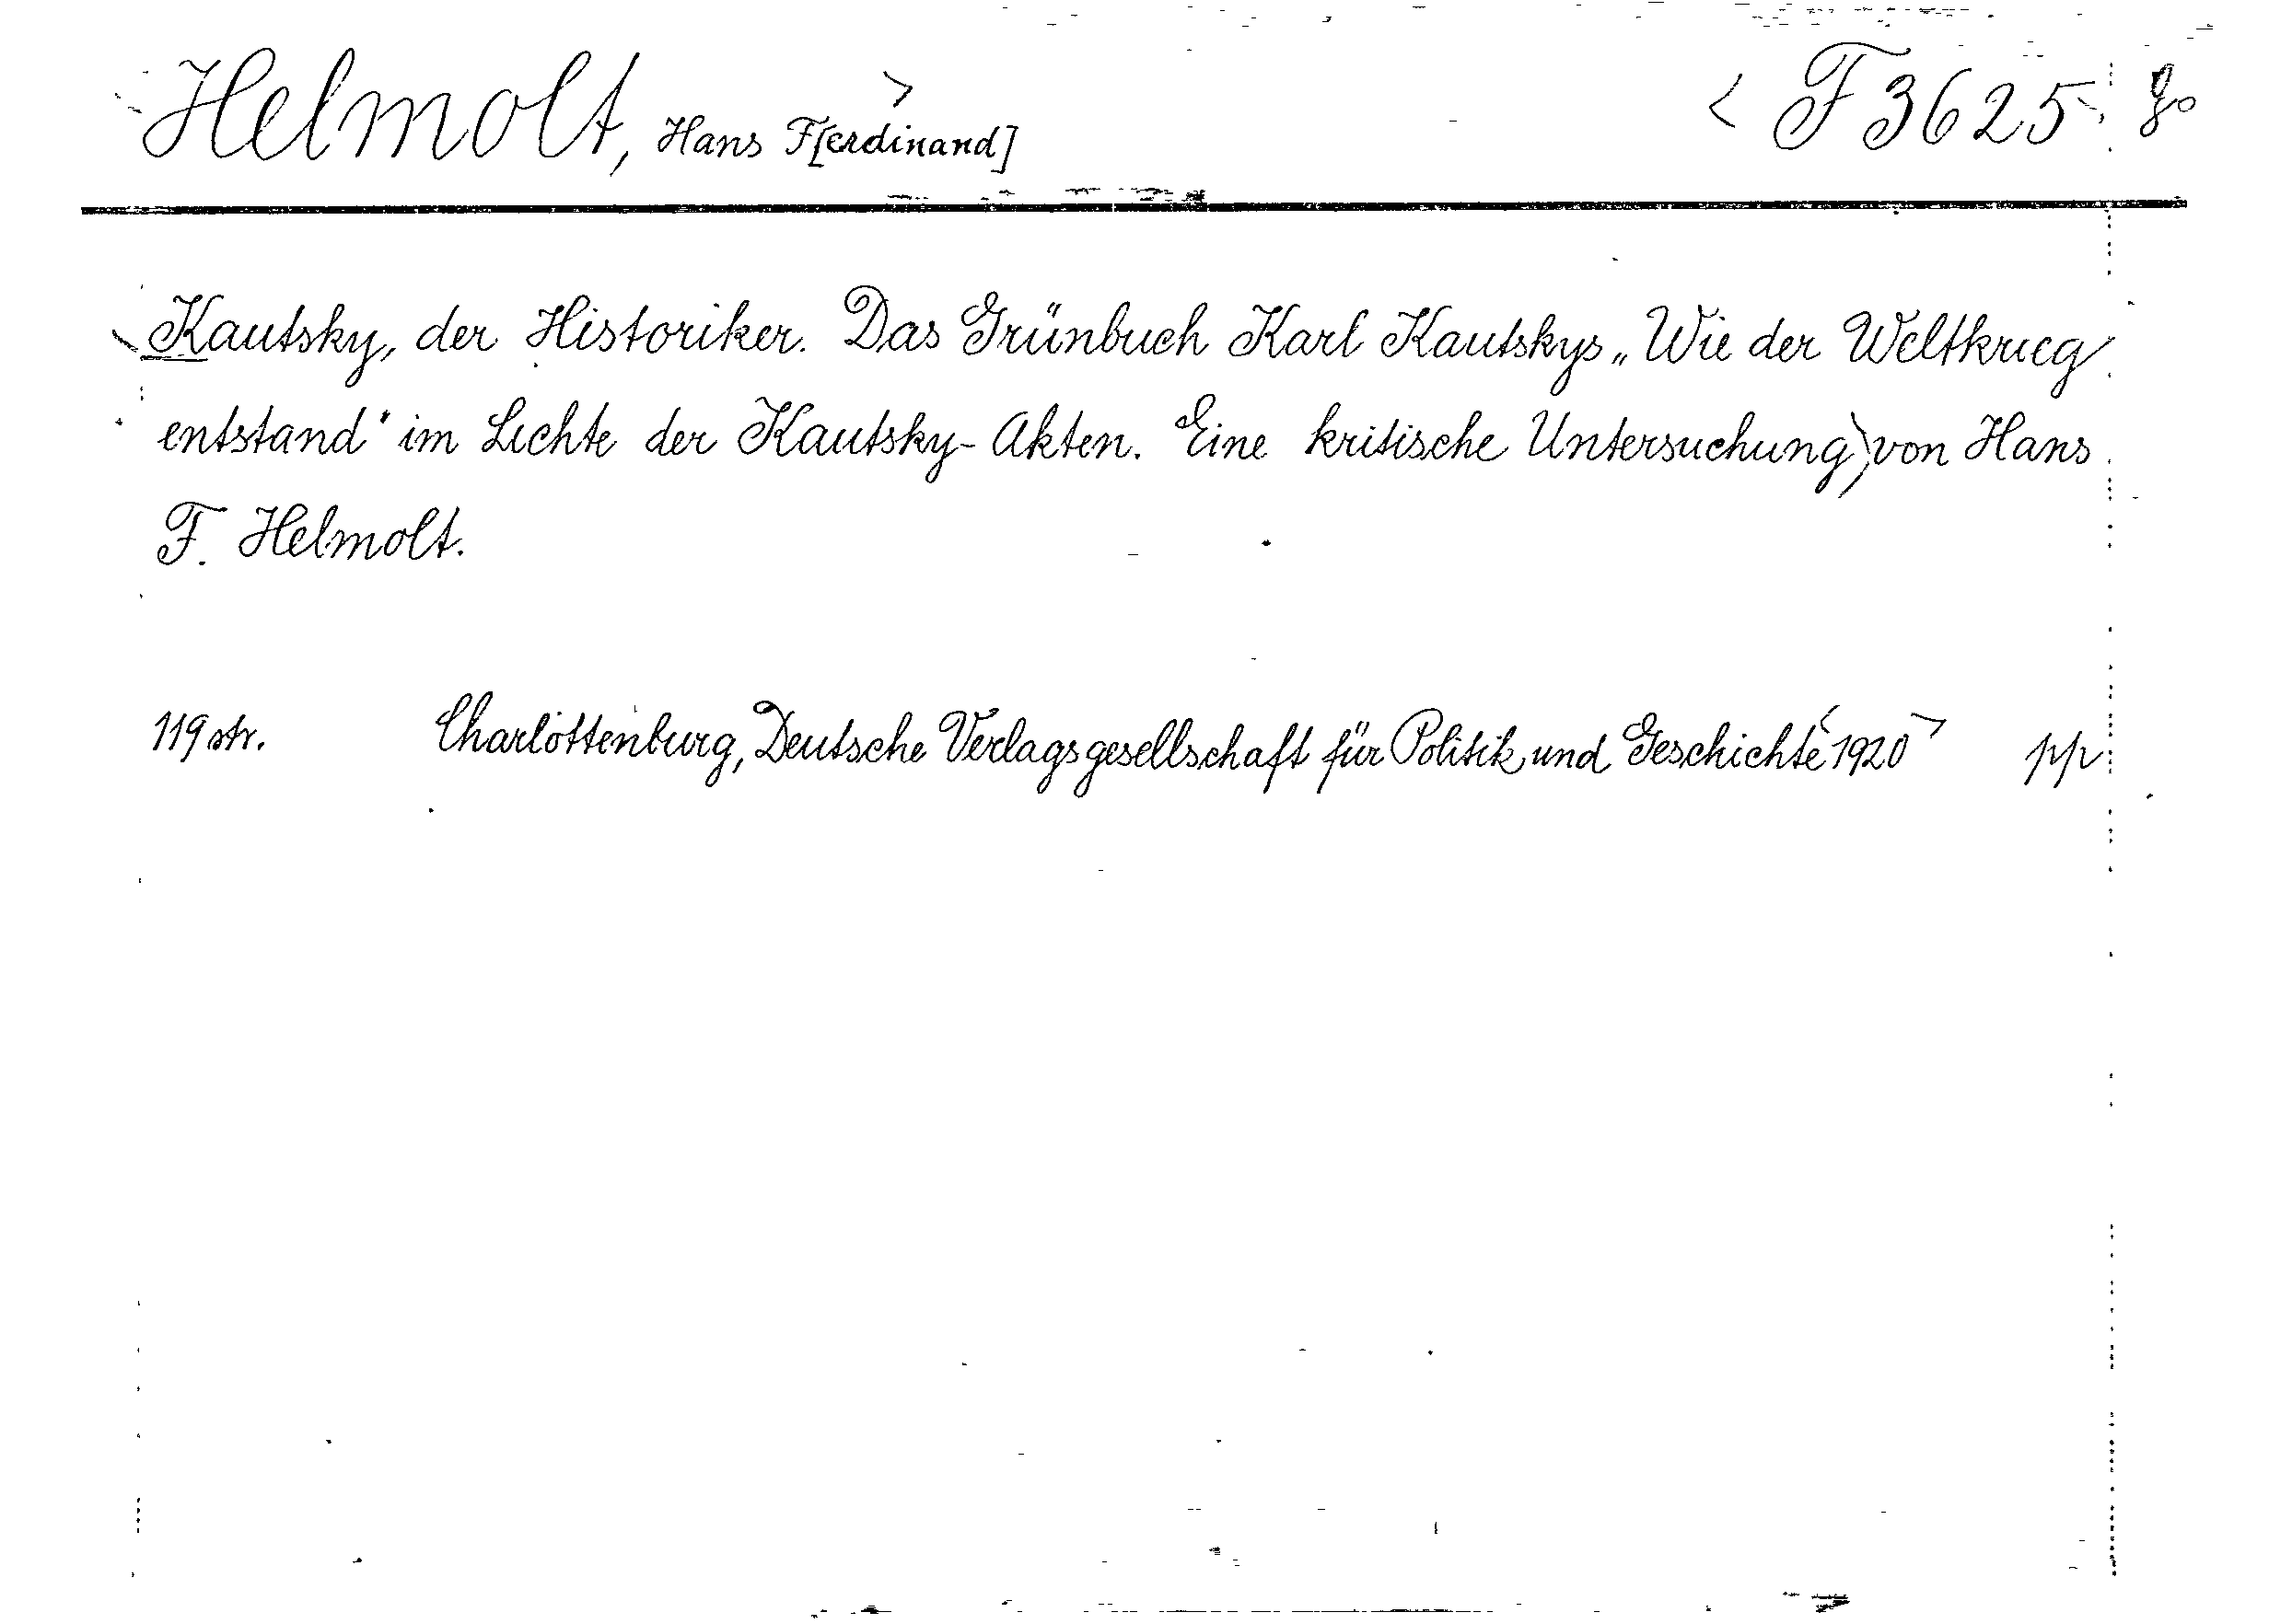 Helmolt, Hans F[erdinand] F 3625
Kautsky, der Historiker. Das Grünbuch Karl Kautskys „Wie der Weltkrieg
entstand" im Lichte der Kautsky-Akten. Eine kritische Untersuchung, von Hans
F. Helmolt.
119 str. Charlottenburg, Deutsche Verlagsgesellschaft für Politik und Geschichte 1920